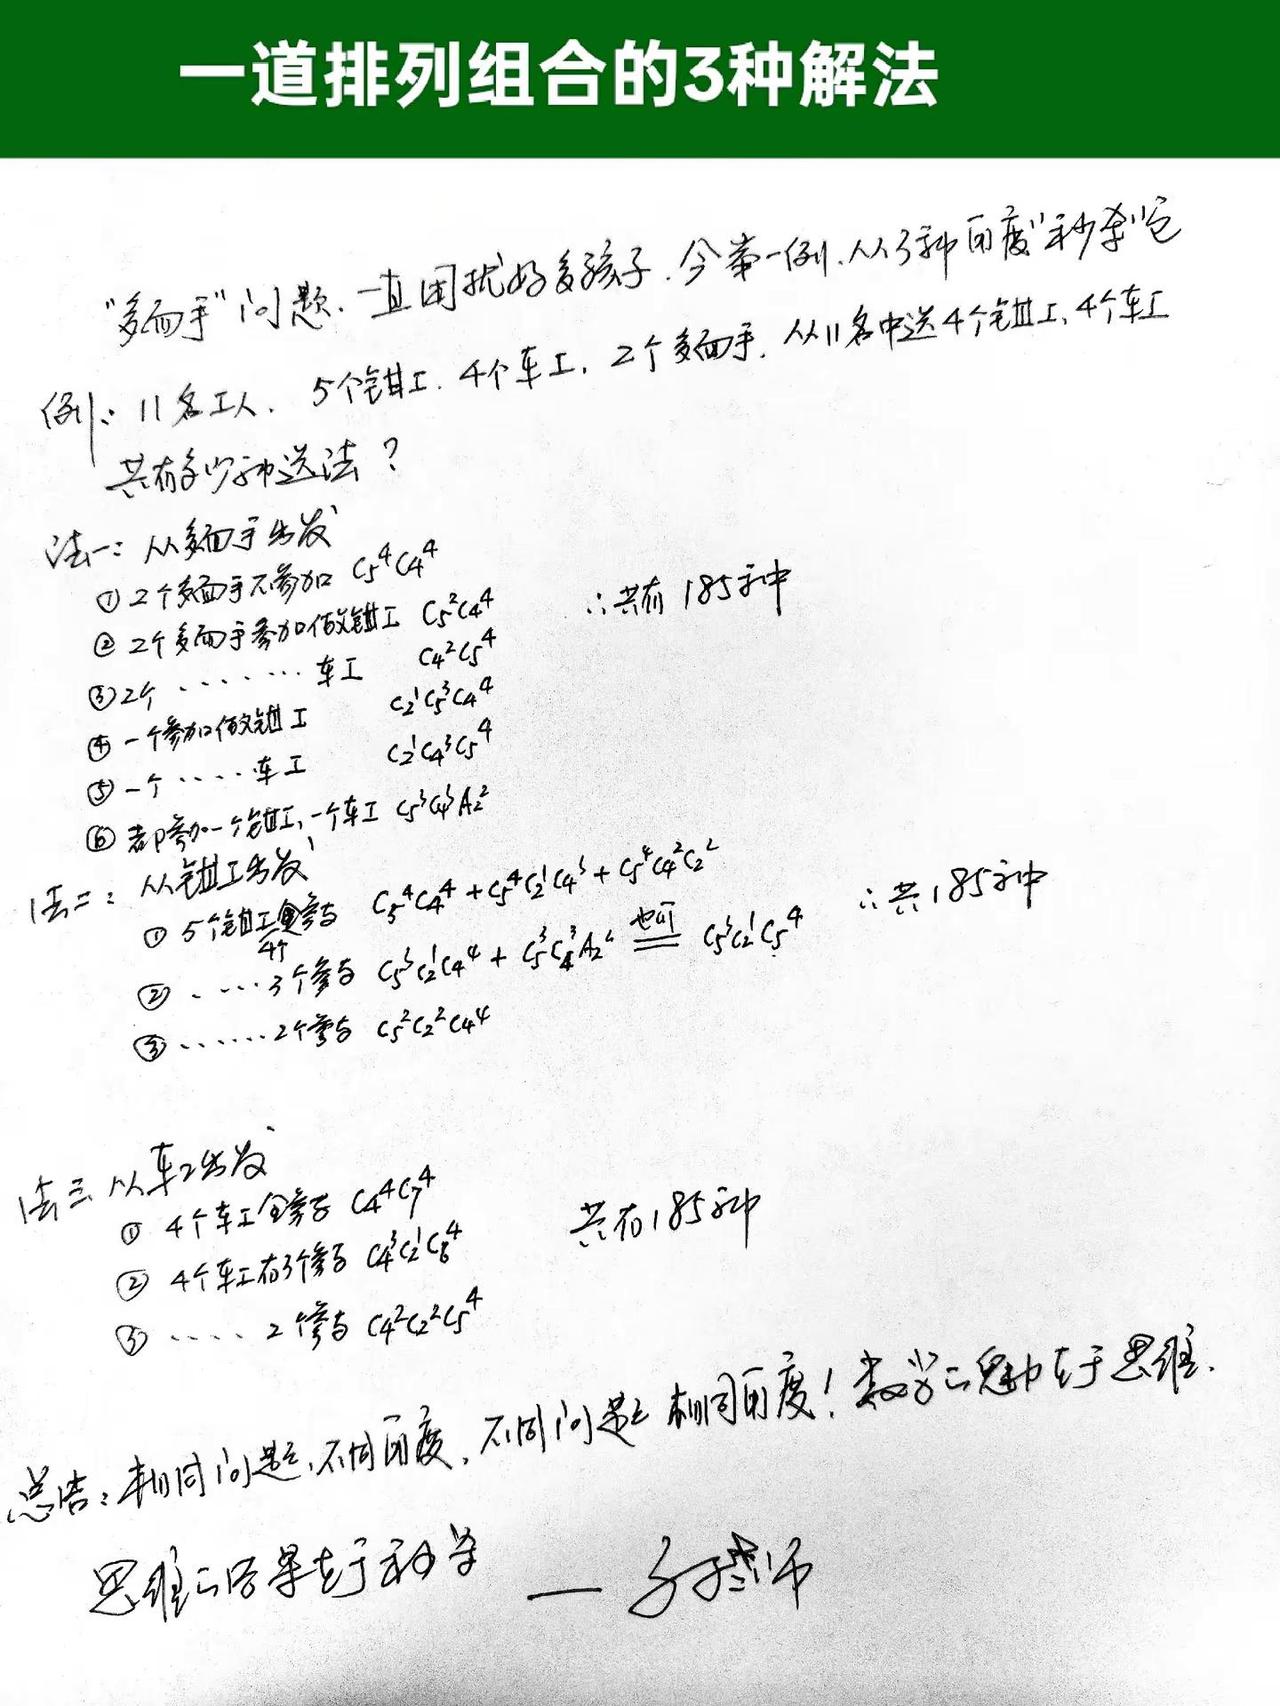 一道排列组合的3种解法
"多面手"问题,一直困扰好多孩子.今举一例.从3种角度"秒杀"它
例:11名工人、5个钳工.4个车工,2个多面手,从11名中选4个钳工、4个车工
共有多少种选法?
法一:从多面手出发
① 2个多面手不参加 C₅⁴C₄⁴
② 2个多面手参加做钳工 C₅²C₄⁴ ∴共有185种
③ 2个 ........ 车工 C₄²C₅⁴
④ 一个参加做钳工 C₂¹C₅³C₄⁴
⑤ 一个 ..... 车工 C₂¹C₄³C₅⁴
⑥ 都参加一个钳工、一个车工 C₅³C₄³A₂²
法二:从钳工出发
① 5个钳工参与 4个 C₅⁴C₄⁴+C₅⁴C₂¹C₄³+C₅⁴C₄²C₂² ∴共185种
② .....3个参与 C₅³C₂¹C₄⁴+C₅³C₄³A₂² 也可 == C₅³C₂¹C₅⁴
③ ......2个参与 C₅²C₂²C₄⁴
法三 从车工出发
① 4个车工全参与 C₄⁴C₇⁴
② 4个车工有3个参与 C₄³C₂¹C₆⁴ 共有185种
③ ..... 2个参与 C₄²C₂²C₅⁴
总结:相同问题,不同角度,不同问题 相同角度!数学之魅力在于思维.
思维之 在于